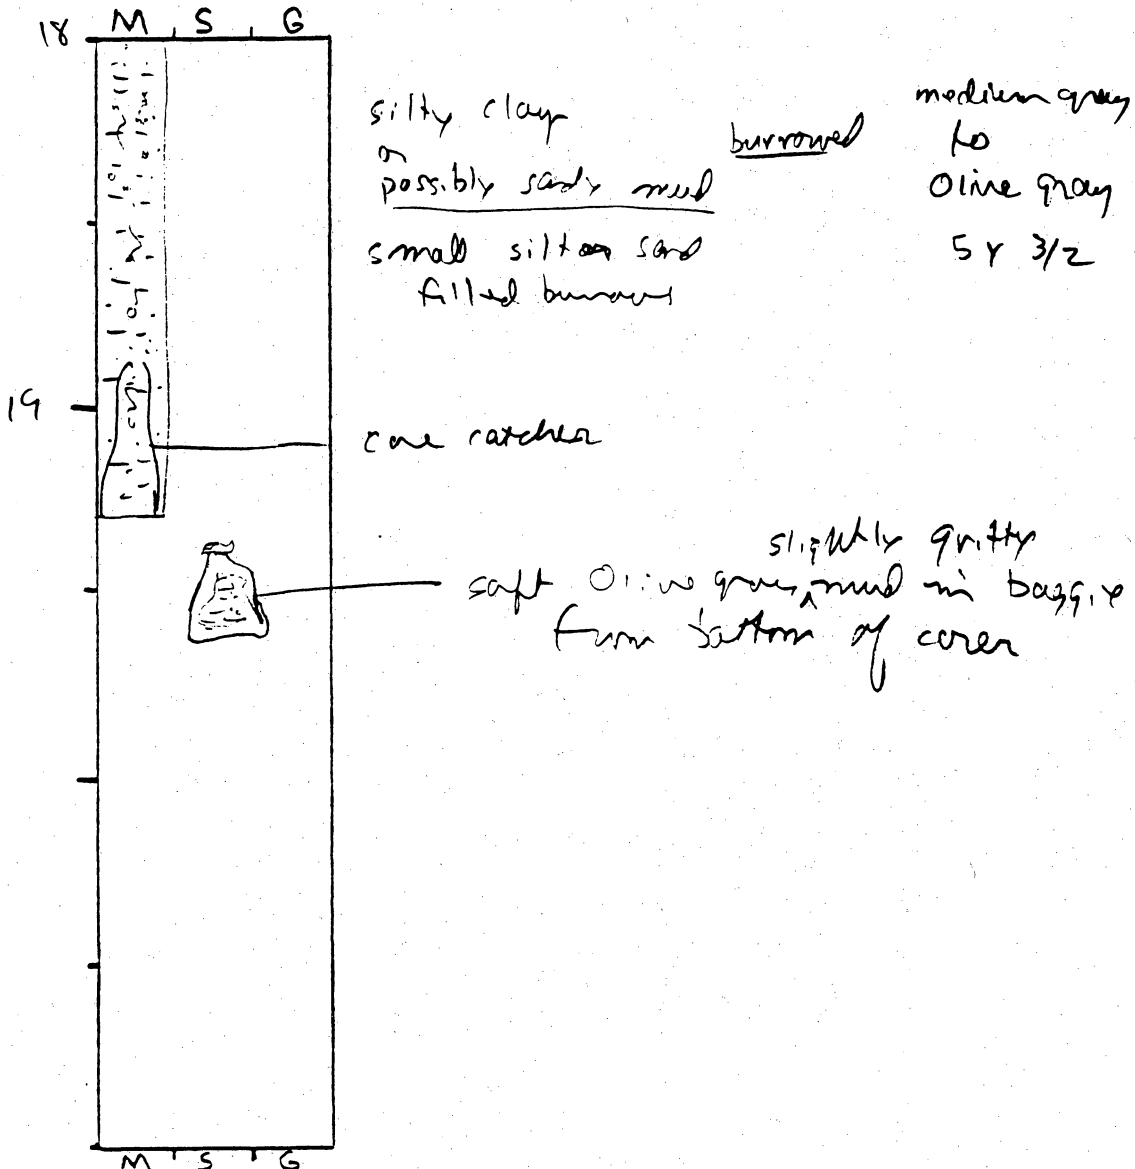 18 M S G
silty clay
or
possibly sandy mud
burrowed
medium gray
to
Olive gray
5 Y 3/2
small silt or sand
filled burrows
19
core catcher
slightly gritty
soft Olive gray ^ mud in baggie
from bottom of corer
M S G